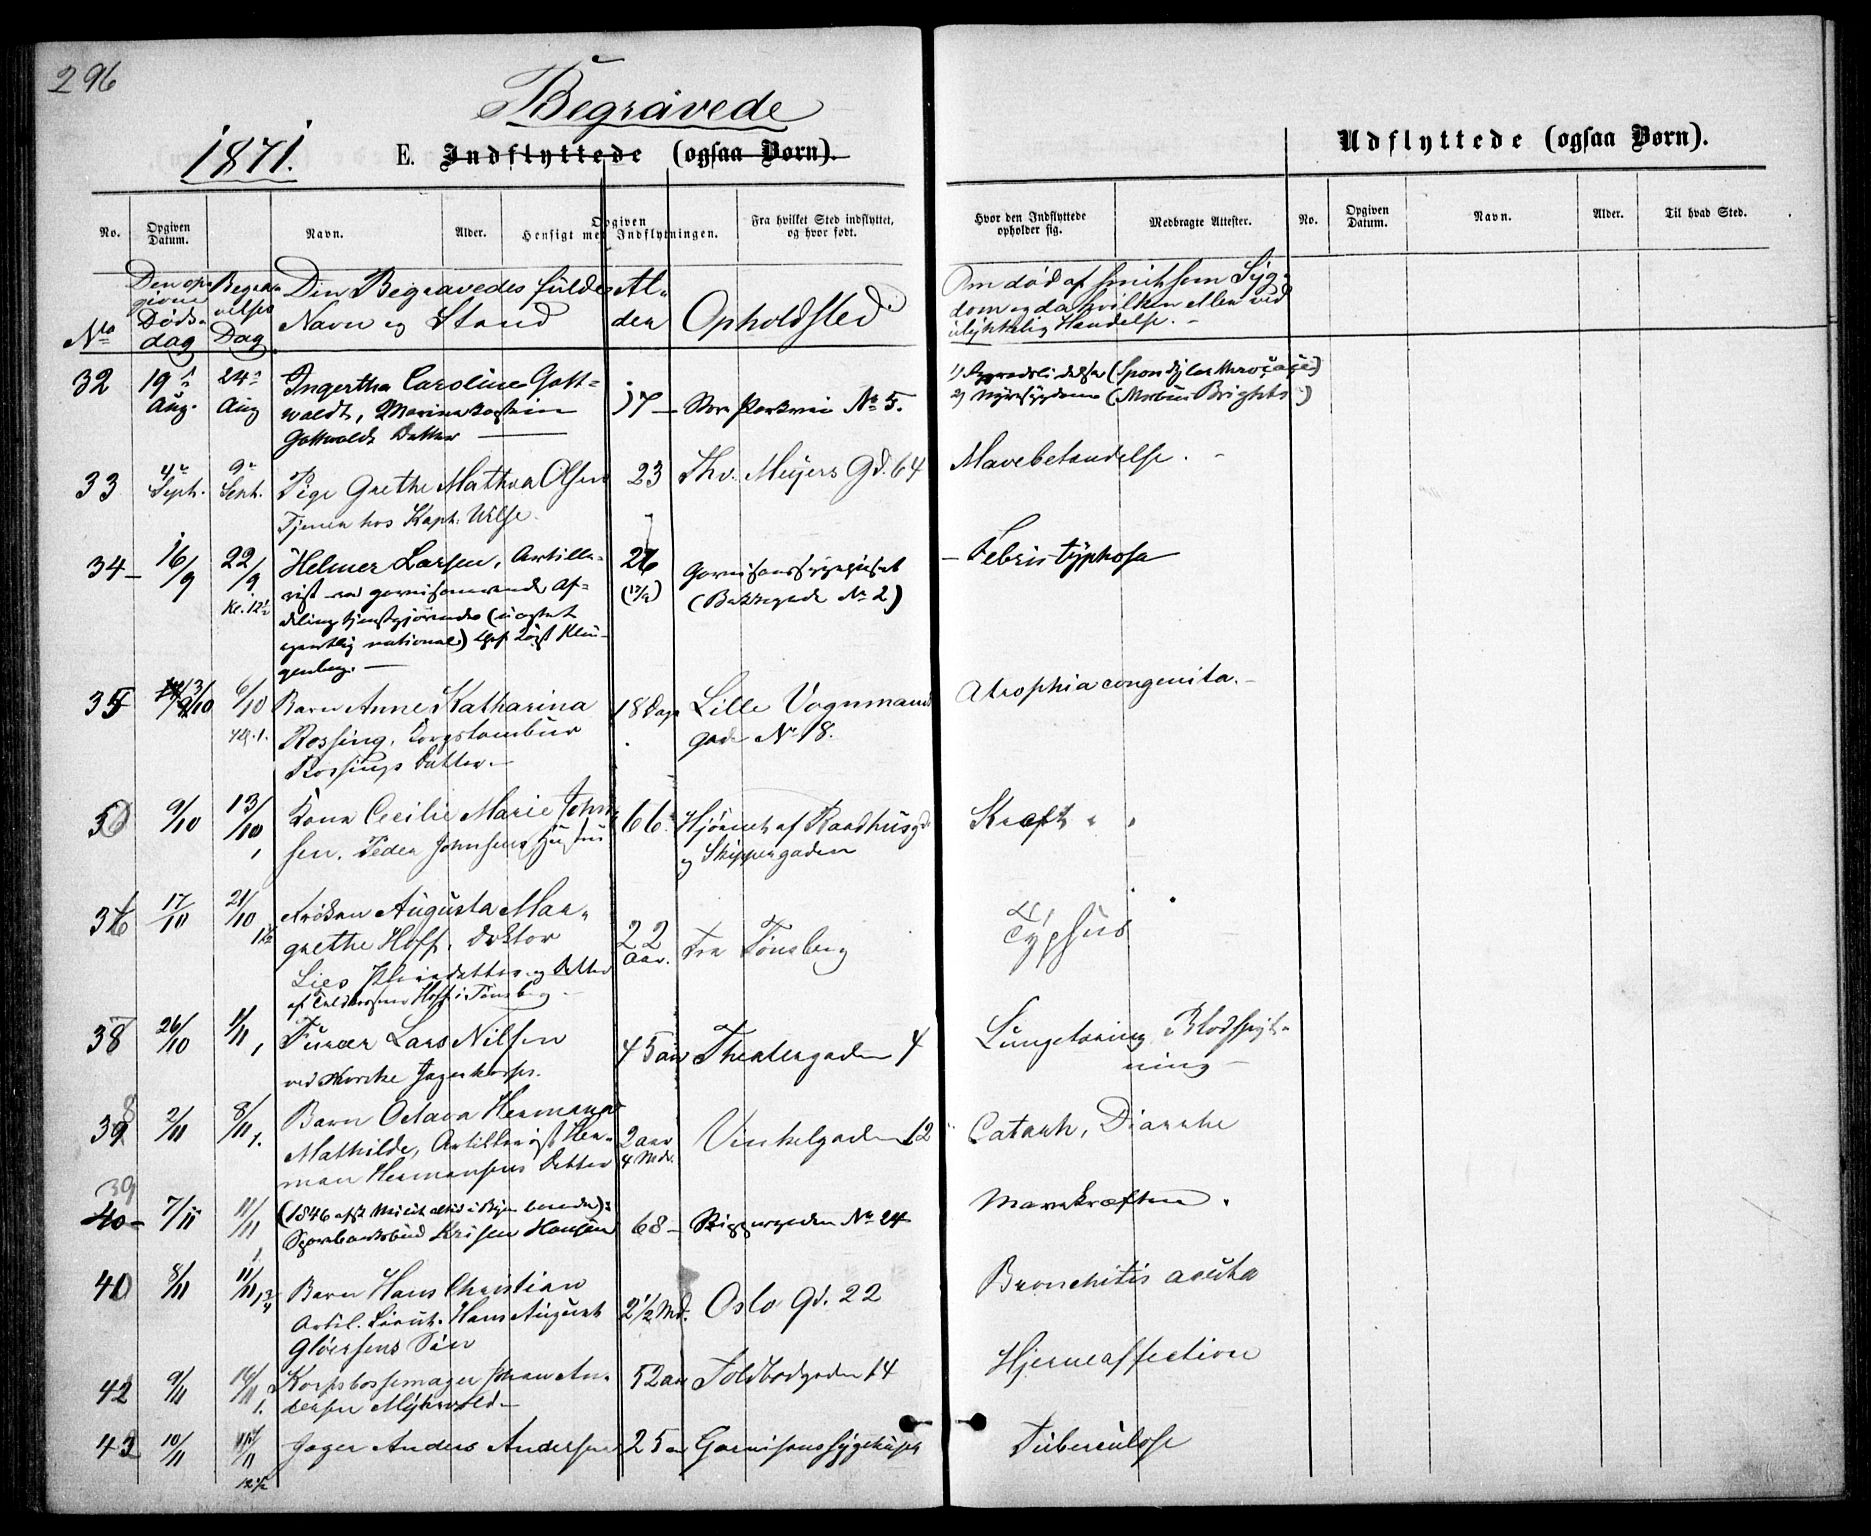 296
Begravede
1871. E. Indflyttede (ogsaa Børn).
Udflyttede (ogsaa Børn).
No. Opgiven Datum. Navn. Alder. Opgiven Hensigt med Indflytningen. Fra hvilket Sted indflyttet, og hvor født. Hvor den Indflyttede opholder sig. Medbragte Attester. No. Opgiven Datum. Navn. Alder. Til hvad Sted.
No Den opgivne Dødsdag Begravelses Dag Den Begravedes fulde Navn og Stand Alder Opholdsted Om død af smitsom Sygdom og da hvilken eller ved ulykkelig Hændelse.
32 19 Aug. 24 Aug Ingertha Caroline Gottwaldt, Marinekaptein Gottwaldts Datter 17 Store Parkvei No 5. 1) (Spondylarthrocace) 2) Nyresygdom (Morbus Brightii)
33 4 Septh. 9 Septh. Pige Grethe Mathea Olsen Tjener hos Kapt. Wilse. 23 Thv. Meyers Gd. 64 Mavebetændelse.
34 16/9 22/9 Kl. 12½ Helmer Larsen, Artillerist ved garnisonerende Afdeling tjenstgjørende (uagtet egentlig national) 26 Garnisonssygehuset (Bakkegade No 2) Febris typhosa
35 3/10 6/10 Kl. 1. Barn Anne Katharina Rossing, Korpstambur Rossings Datter. 18 Dage Lille Vognmandsgade No 18. Atrophia congenita.
36 9/10 13/10 Kone Cecilie Marie Johnsen. Peder Johnsens Hustru 66 Hjørnet af Raadhusgd. og Skippergaden Kræft
36 17/10 21/10 Frøken Augusta Margrethe Hoff, Doktor Lies Pleiedatter og Datter af Hoff i Tønsberg 22 aar. Fra Tønsberg Typhus
38 26/10 1/11 1 Furer Lars Nilsen ved Norske Jægerkorps. 45 aar Theatergaden 4 Lungetæring Blodspytning
38 2/11 8/11 1. Barn Octava Hermana Mathilde, Artillerist Herman Hermansens Datter 2 aar 4 Md. Vinkelgaden 12 Catarrh, Diarrhe
39 40 7/11 11/11 1 Sparebanksbud Hansen 68 Skippergaden No 24 Mavekræften.
40 8/11 11/11 Barn Hans Christian Artil. Lieut. Hans August Gløersens Søn 2½ Md. Oslo Gd. 22 Bronchitis acuta
42 9/11 16/11 1. Korpsbøssemager Johan Andersen Myhrvold 52 aar Toldbodgaden 14 Hjerneaffection
43 10/11 Jæger Anders Andersen 25 aar Garnisonssygehuset Tuberculose